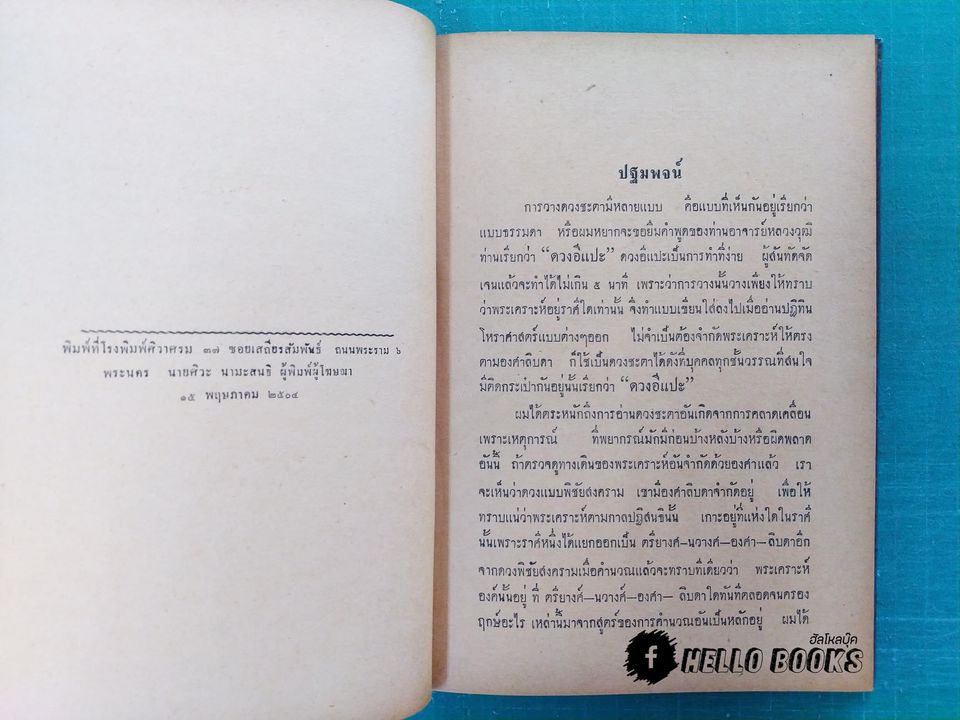 พิมพ์ที่โรงพิมพ์ศิวาศรม ๓๗ ซอยเสถียรสัมพันธ์ ถนนพระราม ๖
พระนคร นายศิวะ นามะสนธิ ผู้พิมพ์ผู้โฆษณา
๑๕ พฤษภาคม ๒๕๐๔
ปฐมพจน์
การวางดวงชะตามีหลายแบบ คือแบบที่เห็นกันอยู่เรียกว่า
แบบธรรมดา หรือผมหยากจะขอยืมคำพูดของท่านอาจารย์หลวงวุฒิ
ท่านเรียกว่า “ดวงอีแปะ” ดวงอีแปะเป็นการทำที่ง่าย ผู้สันทัดจัด
เจนแล้วจะทำได้ไม่เกิน ๕ นาที เพราะว่าการวางนั้นวางเพียงให้ทราบ
ว่าพระเคราะห์อยู่ราศีใดเท่านั้น จึงทำแบบเขียนใส่ลงไปเมื่ออ่านปฏิทิน
โหราศาสตร์แบบต่างๆออก ไม่จำเป็นต้องจำกัดพระเคราะห์ให้ตรง
ตามองศาลิบดา ก็ใช้เป็นดวงชะตาได้ดังที่บุคคลทุกชั้นวรรณที่สนใจ
มีติดกระเป๋ากันอยู่นั้นเรียกว่า “ดวงอีแปะ”
ผมได้ตระหนักถึงการอ่านดวงชะตาอันเกิดจากการคลาดเคลื่อน
เพราะเหตุการณ์ ที่พยากรณ์มักมีก่อนบ้างหลังบ้างหรือผิดพลาด
อันนี้ ถ้าตรวจดูทางเดินของพระเคราะห์อันจำกัดด้วยองศาแล้ว เรา
จะเห็นว่าดวงแบบพิชัยสงคราม เขามีองศาลิบดาจำกัดอยู่ เพื่อให้
ทราบแน่ว่าพระเคราะห์ตามกาลปฏิสนธินั้น เกาะอยู่ที่แห่งใดในราศี
นั้นเพราะราศีหนึ่งได้แยกออกเป็น ตรียางศ์—นวางศ์—องศา—ลิบดาอีก
จากดวงพิชัยสงครามเมื่อคำนวณแล้วจะทราบทีเดียวว่า พระเคราะห์
องค์นั้นอยู่ ที่ ตรียางค์—นวางศ์—องศา— ลิบดาใดทันทีตลอดจนครอง
ฤกษ์อะไร เหล่านี้มาจากสูตร์ของการคำนวณอันเป็นหลักอยู่ ผมได้
ฮัลโหลบุ๊ค
f HELLO BOOKS